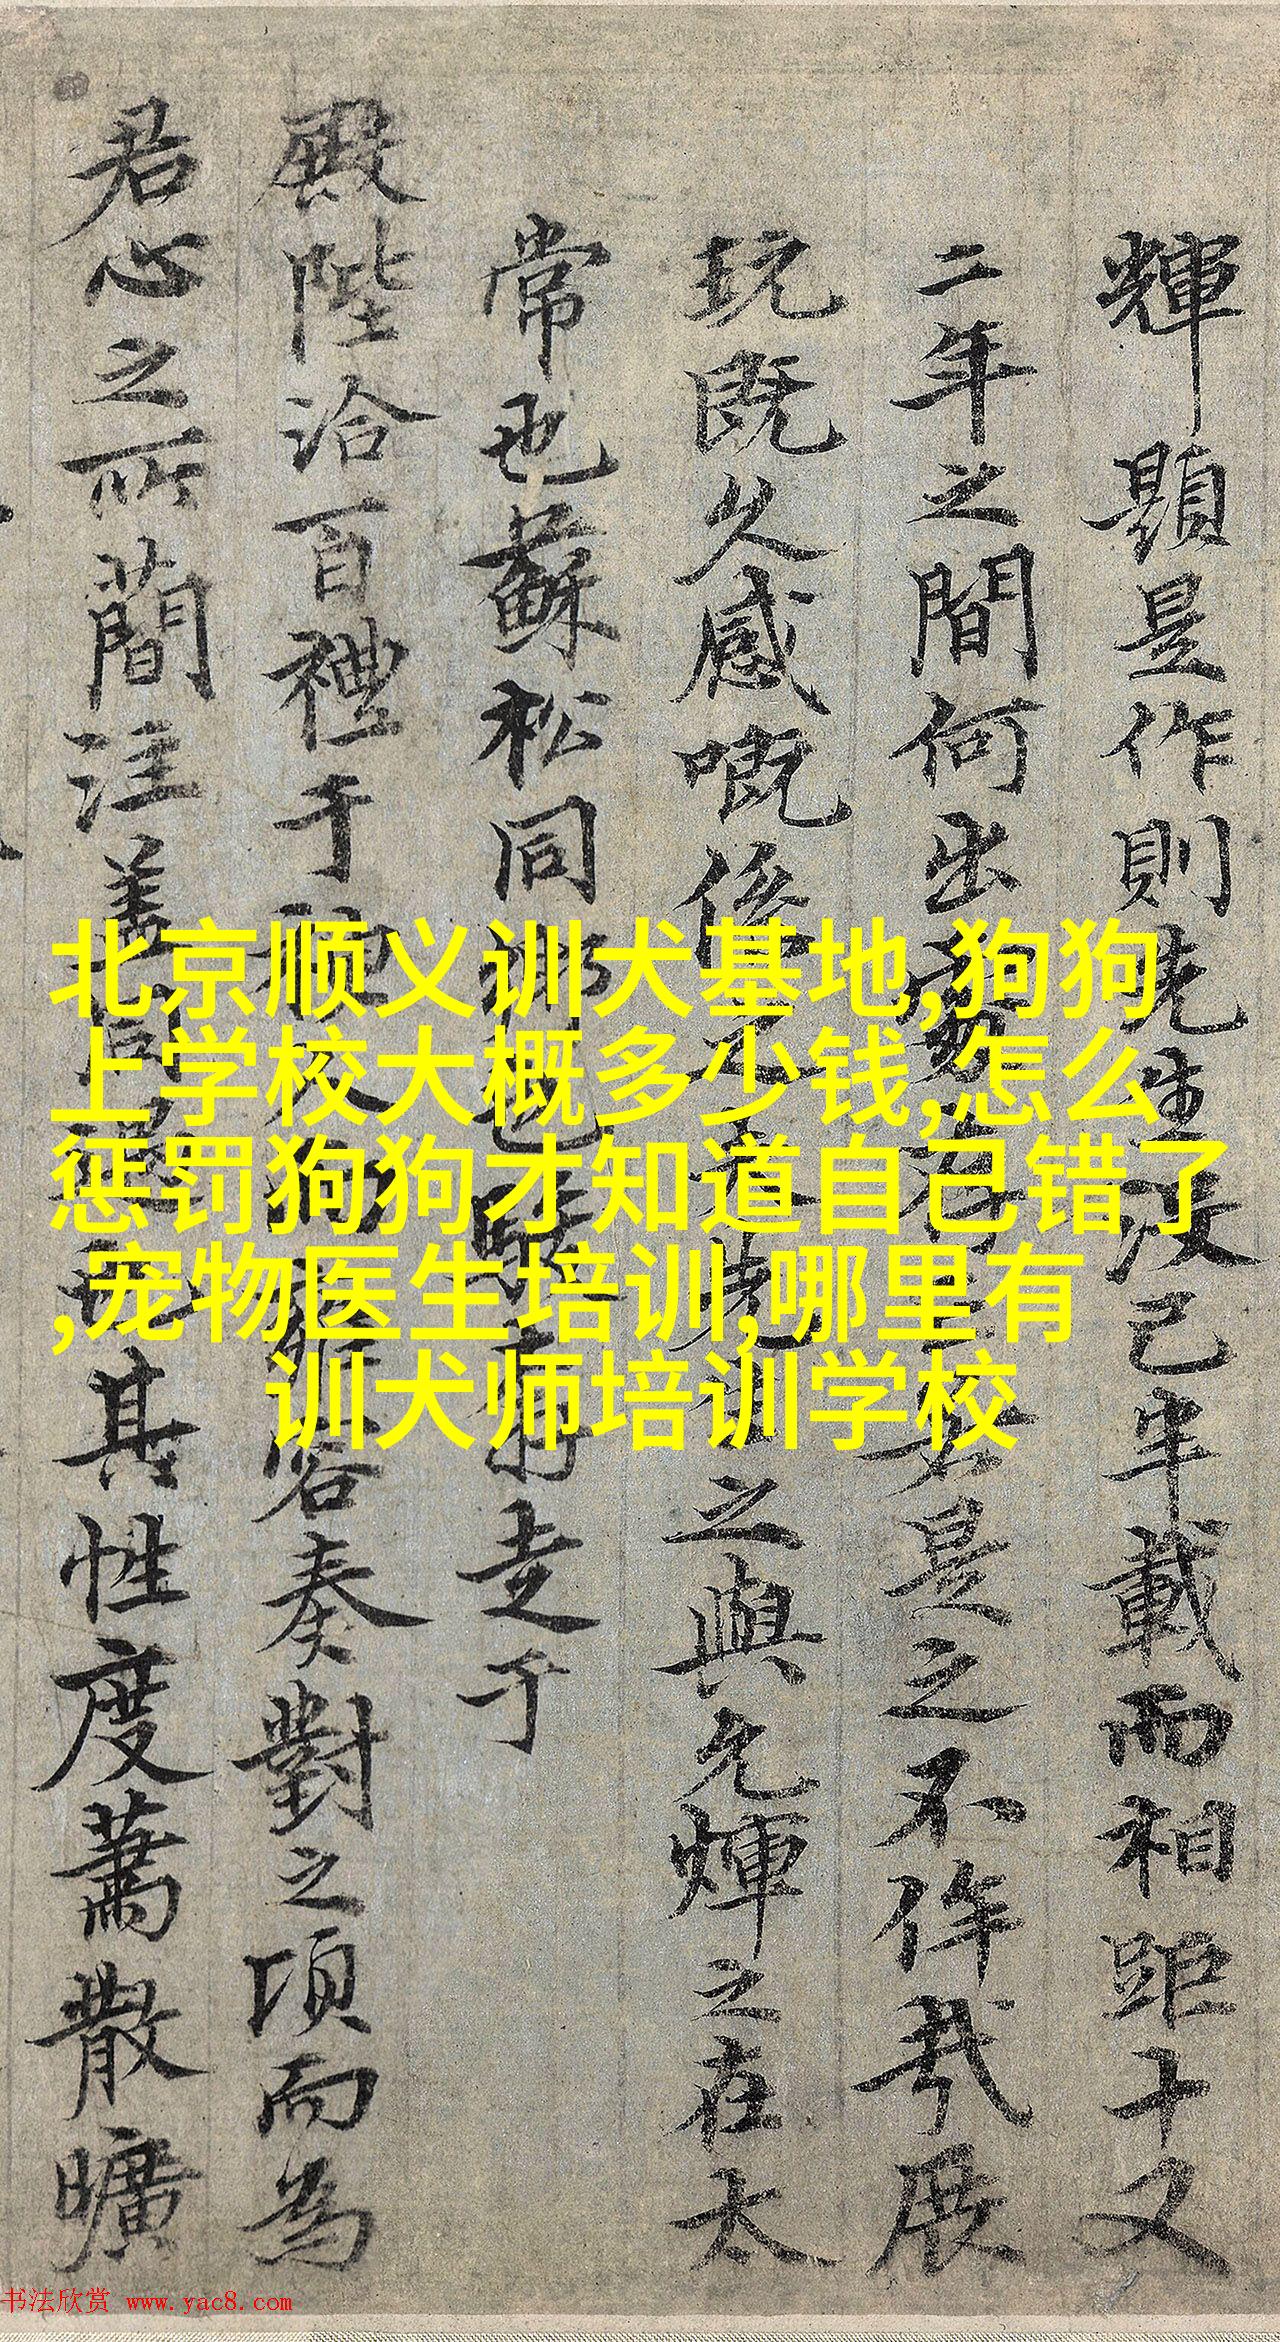 輝題是作則先生沒已半載而相距十又
二年之間何出處若是之不侔哉展
玩既久感嘅係之矣先生之與允輝之在太
常也蘇松同鄉也奔走于
殿陛洽百禮于容奏對之頃而為
君心之所簡注蓋其性度蕭散曠
北京顺义训犬基地,狗狗
上学校大概多少钱,怎么
惩罚狗狗才知道自己错了
,宠物医生培训,哪里有
训犬师培训学校
书法欣赏 www.yac8.com